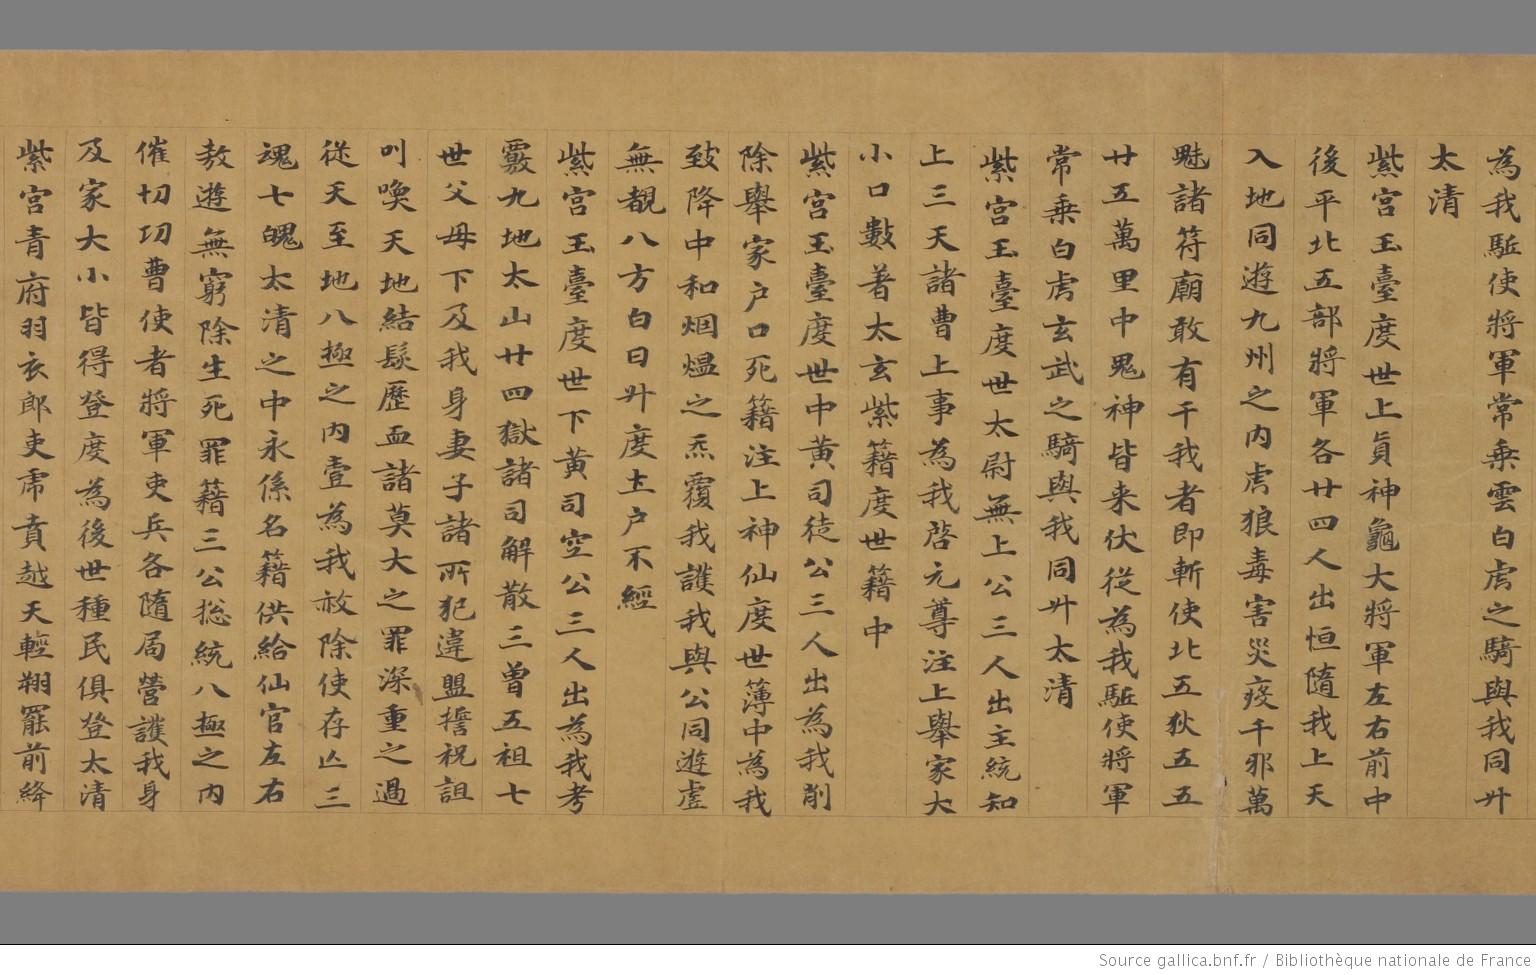 為我駈使將軍常乗雲白虎之騎與我同昇
太清
紫宮玉臺度世上真神龜大將軍左右前中
後平北五部將軍各廿四人出恒隨我上天
入地同遊九州之内虎狼毒害災疫千邪萬
魅諸符廟敢有干我者即斬使北五狄五五
廿五萬里中鬼神皆来伏從為我駈使將軍
常乗白虎玄武之騎與我同昇太清
紫宮玉臺度世太尉無上公三人出主統知
上三天諸曹上事為我啓元尊注上舉家大
小口數著太玄紫籍度世籍中
紫宮玉臺度世中黄司徒公三人出為我削
除舉家户口死籍注上神仙度世簿中為我
致降中和烟煴之炁覆我護我與公同遊虚
無覩八方白日昇度土户不經
紫宮玉臺度世下黄司空公三人出為我考
覈九地太山廿四獄諸司解散三曽五祖七
世父母下及我身妻子諸所犯違盟誓祝詛
叫喚天地結髮歷血諸莫大之罪深重之過
從天至地八極之内壹為我赦除使存亡三
魂七魄太清之中永係名籍供給仙官左右
敖遊無窮除生死罪籍三公揔統八極之内
催切功曹使者將軍吏兵各隨局營護我身
及家大小皆得登度為後世種民俱登太清
紫宮青府羽衣郎吏席賁越天輕翔罷前絳
Source gallica.bnf.fr / Bibliothèque nationale de France